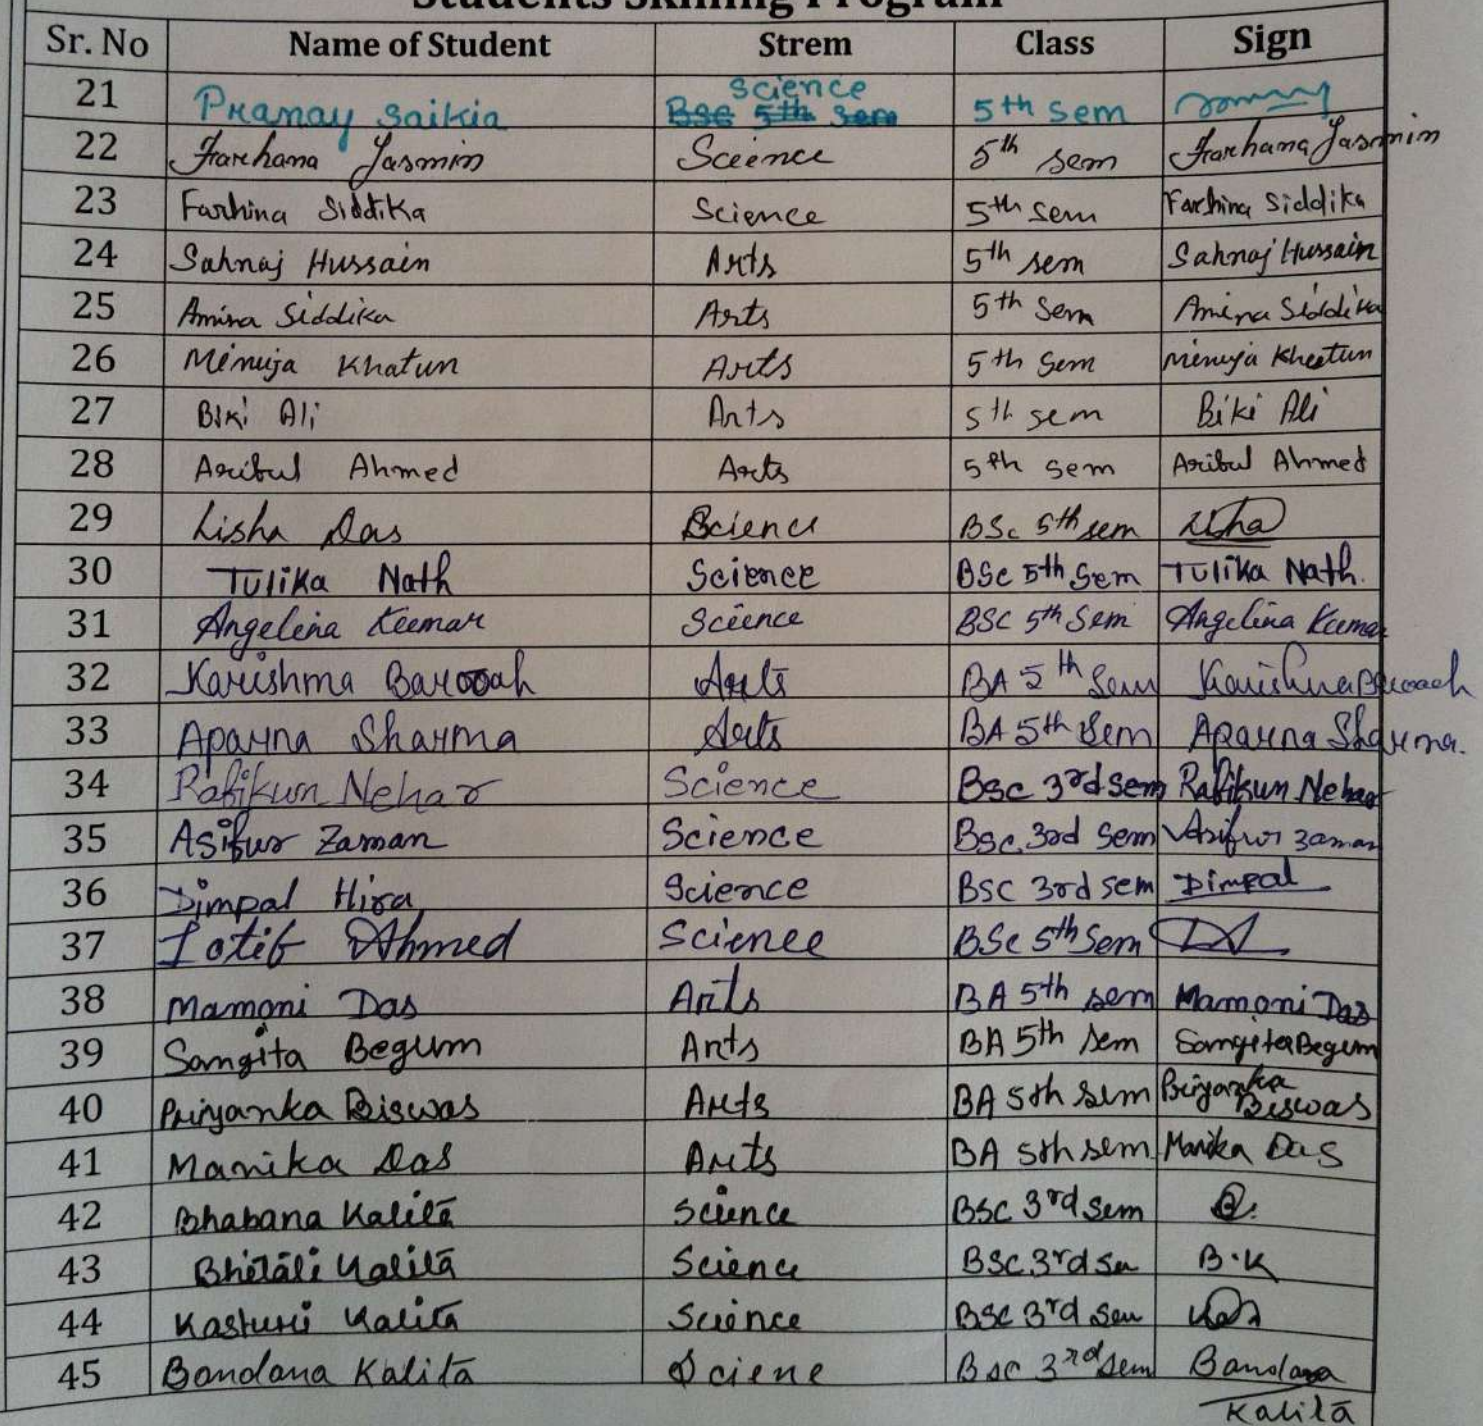 Students Skilling Program
Sr. No Name of Student Strem Class Sign
Science
21 Pranay Saikia BSC 5th Sem 5th Sem
22 Farhana Jasmin Science 5th sem Farhana Jasmin
23 Farhina Siddika Science 5th sem Farhina Siddika
24 Sahnaj Hussain Arts 5th sem Sahnaj Hussain
25 Amina Siddika Arts 5th Sem Amina Siddika
26 Minuja Khatun Arts 5th Sem Minuja Khatun
27 Biki Ali Arts 5th sem Biki Ali
28 Aribul Ahmed Arts 5th sem Aribul Ahmed
29 Lisha Das Science BSc 5th sem Lisha
30 Tulika Nath Science BSc 5th Sem Tulika Nath.
31 Angelina Kumar Science BSC 5th Sem Angelina Kumar
32 Karishma Barooah Arts BA 5th Sem Karishma Barooah
33 Aparna Sharma Arts BA 5th Sem Aparna Sharma.
34 Rafikun Nehar Science Bsc 3rd sem Rafikun Nehar
35 Asifur Zaman Science Bsc. 3rd Sem Asifur zaman
36 Dimpal Hira Science BSC 3rd sem Dimpal
37 Lotif Ahmed Science BSc 5th Sem
38 Mamoni Das Arts BA 5th sem Mamoni Das
39 Sangita Begum Arts BA 5th sem Sangita Begum
40 Priyanka Biswas Arts BA 5th sem Priyanka
Biswas
41 Manika Das Arts BA 5th sem Manika Das
42 Bhabana Kalita Science BSC 3rd Sem B.
43 Bhitali Kalita Science BSC 3rd Sem B.K
44 Kasturi Kalita Science BSC 3rd Sem
45 Bandana Kalita Sciene Bsc 3rd Sem Bandana
Kalita